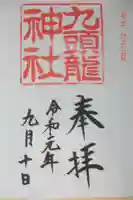 奉拝
九頭龍
神社
令和元年
九月十日